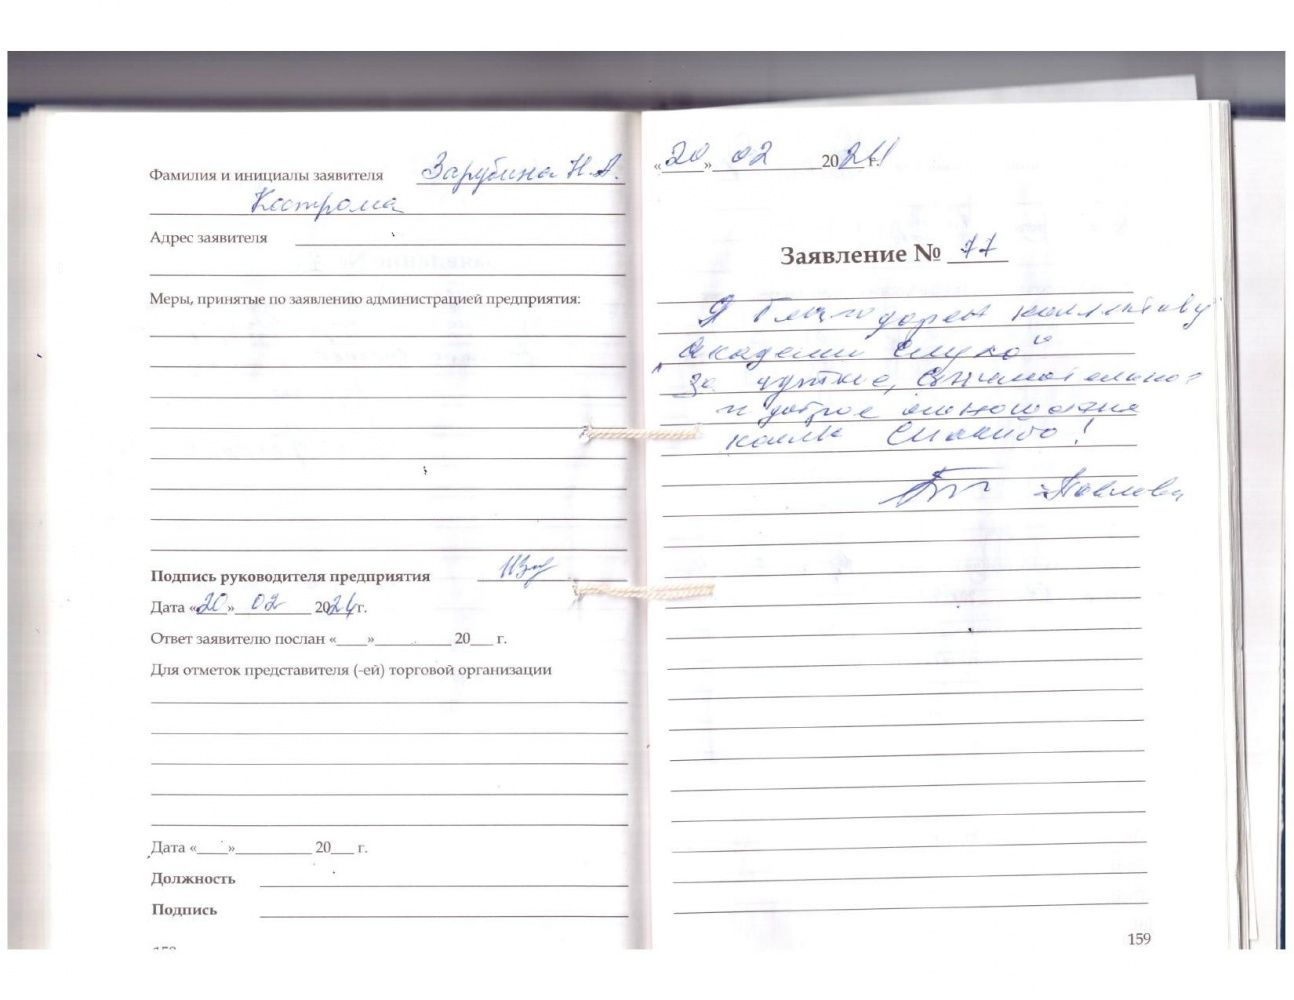 Фамилия и инициалы заявителя Зарубина Н.А.
Кострома
Адрес заявителя
Меры, принятые по заявлению администрацией предприятия:
Подпись руководителя предприятия
Дата «20» 02 2024 г.
Ответ заявителю послан «___» ________ 20___ г.
Для отметок представителя (-ей) торговой организации
Дата «___» ________ 20___ г.
Должность
Подпись
«20» 02 2024 г.
Заявление № 77
Я благодарен коллективу
"Академии слуха"
за чуткое, внимательное
и доброе отношение
Спасибо!
Павлова
159